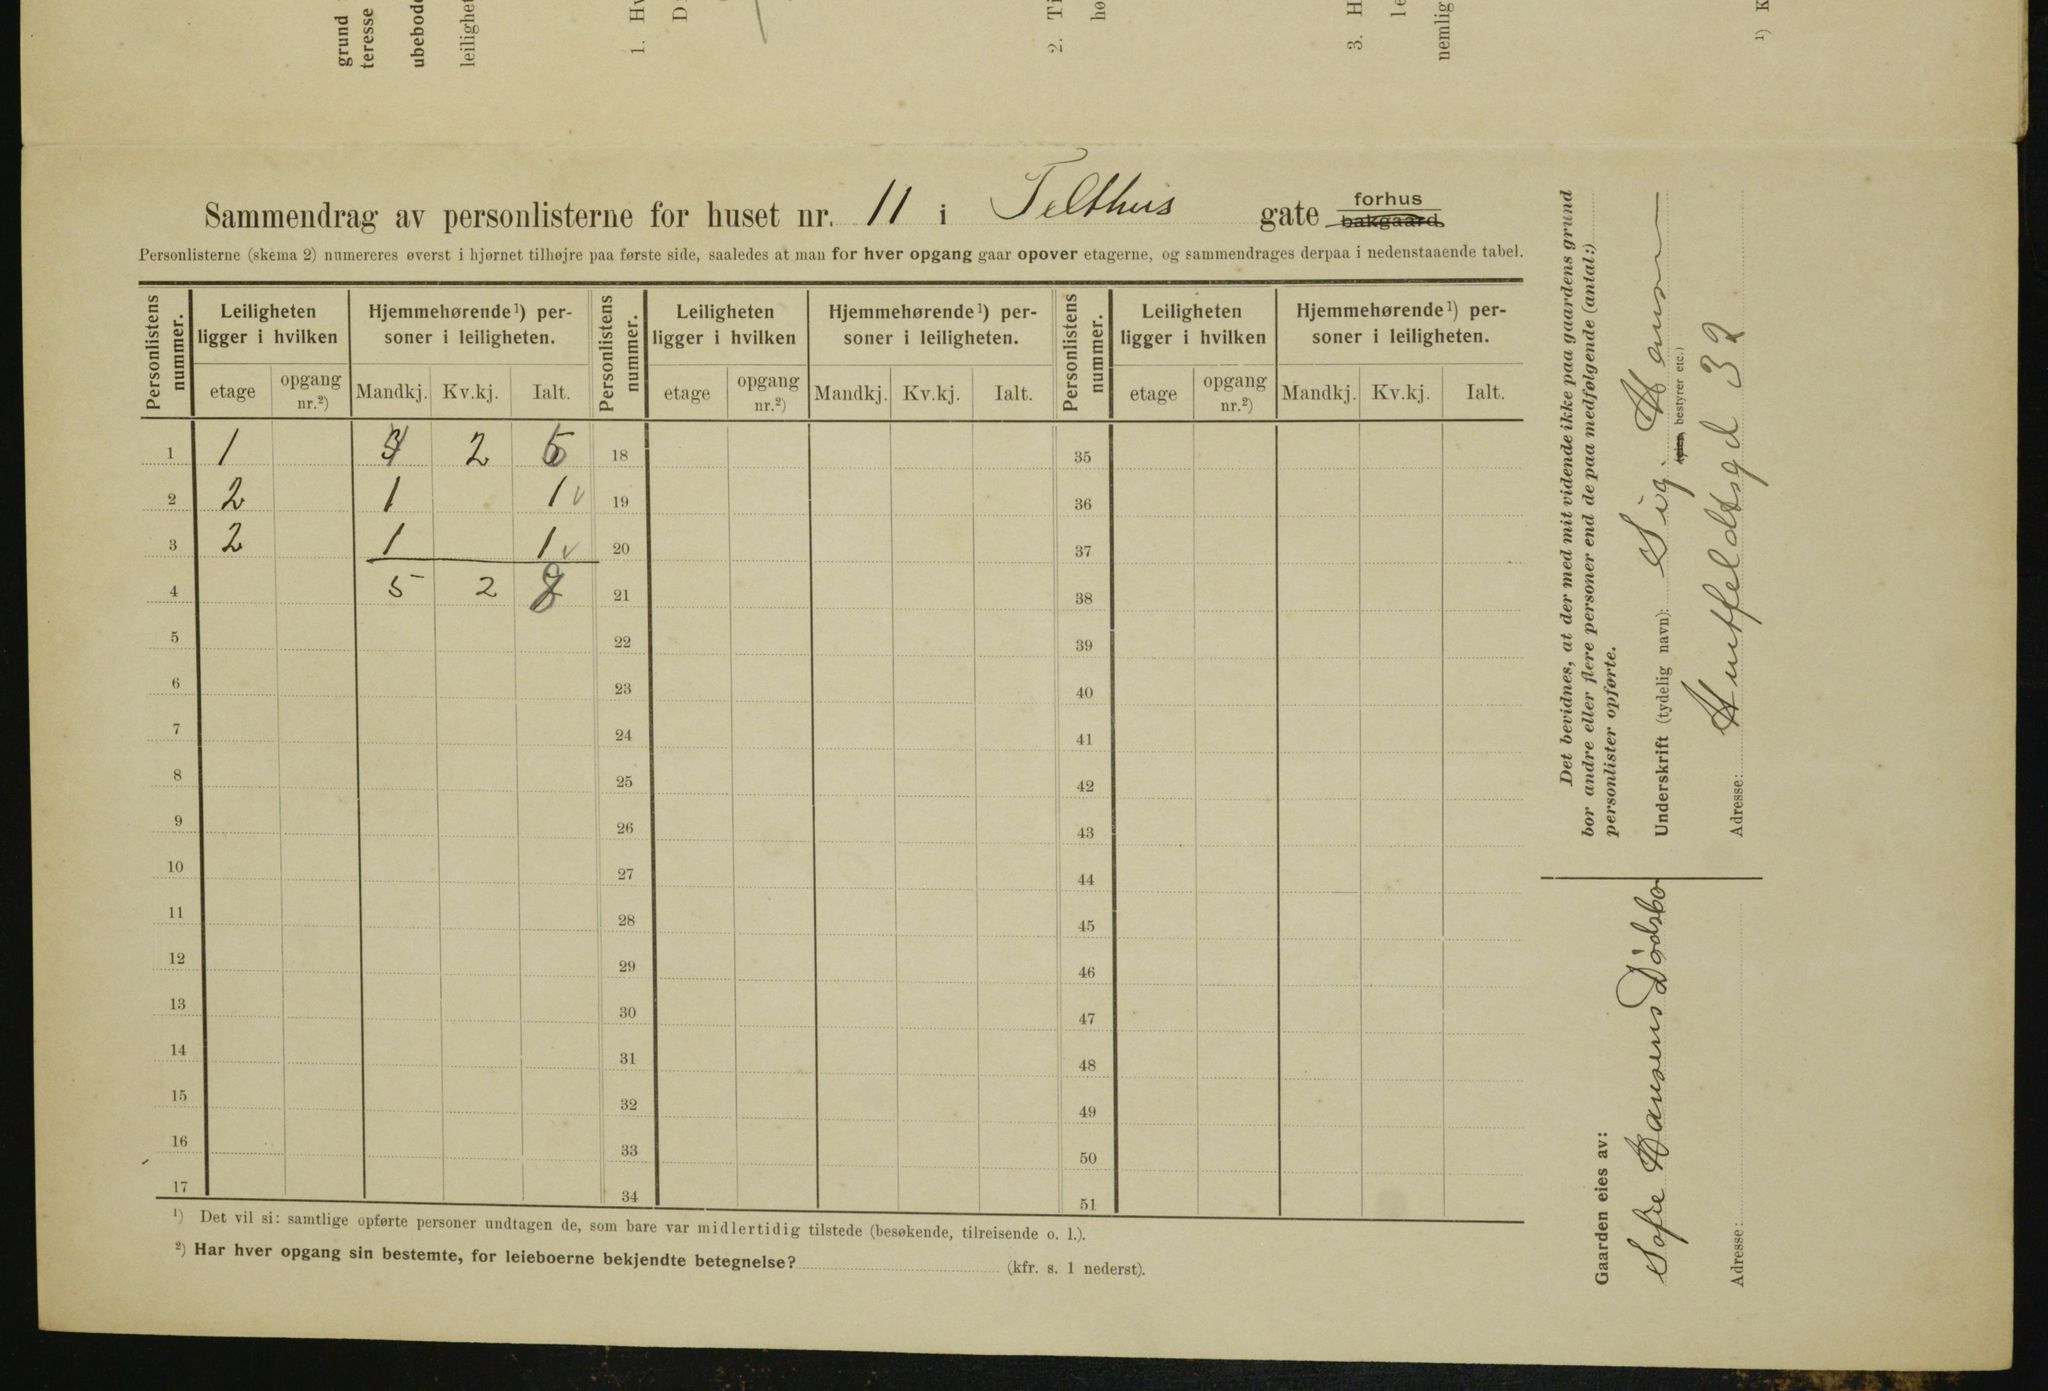 grund
teresse
ubebod
leilighet
1. Hv
D
2. Ti
hø
3. H
le
nemlig
¹) K
Sammendrag av personlisterne for huset nr. 11 i Telthus gate forhus
bakgaard
Personlisterne (skema 2) numereres øverst i hjørnet tilhøjre paa første side, saaledes at man for hver opgang gaar opover etagerne, og sammendrages derpaa i nedenstaaende tabel.
Personlistens nummer. Leiligheten ligger i hvilken Hjemmehørende¹) personer i leiligheten. Personlistens nummer. Leiligheten ligger i hvilken Hjemmehørende¹) personer i leiligheten. Personlistens nummer. Leiligheten ligger i hvilken Hjemmehørende¹) personer i leiligheten.
etage opgang nr.²) Mandkj. Kv.kj. Ialt. etage opgang nr.²) Mandkj. Kv.kj. Ialt. etage opgang nr.²) Mandkj. Kv.kj. Ialt.
1 1 2 18 35
2 2 1 1 19 36
3 2 1 1 20 37
4 5 2 21 38
5 22 39
6 23 40
7 24 41
8 25 42
9 26 43
10 27 44
11 28 45
12 29 46
13 30 47
14 31 48
15 32 49
16 33 50
17 34 51
¹) Det vil si: samtlige opførte personer undtagen de, som bare var midlertidig tilstede (besøkende, tilreisende o. l.).
²) Har hver opgang sin bestemte, for leieboerne bekjendte betegnelse? (kfr. s. 1 nederst).
Det bevidnes, at der med mit vidende ikke paa gaardens grund
bor andre eller flere personer end de paa medfølgende (antal:)
personlister opførte.
Underskrift (tydelig navn): Sig. Hansen
(eier, bestyrer etc.)
Adresse: Huitfeldtsgd 32
Gaarden eies av:
Sofie Hansens Dødsbo
Adresse: